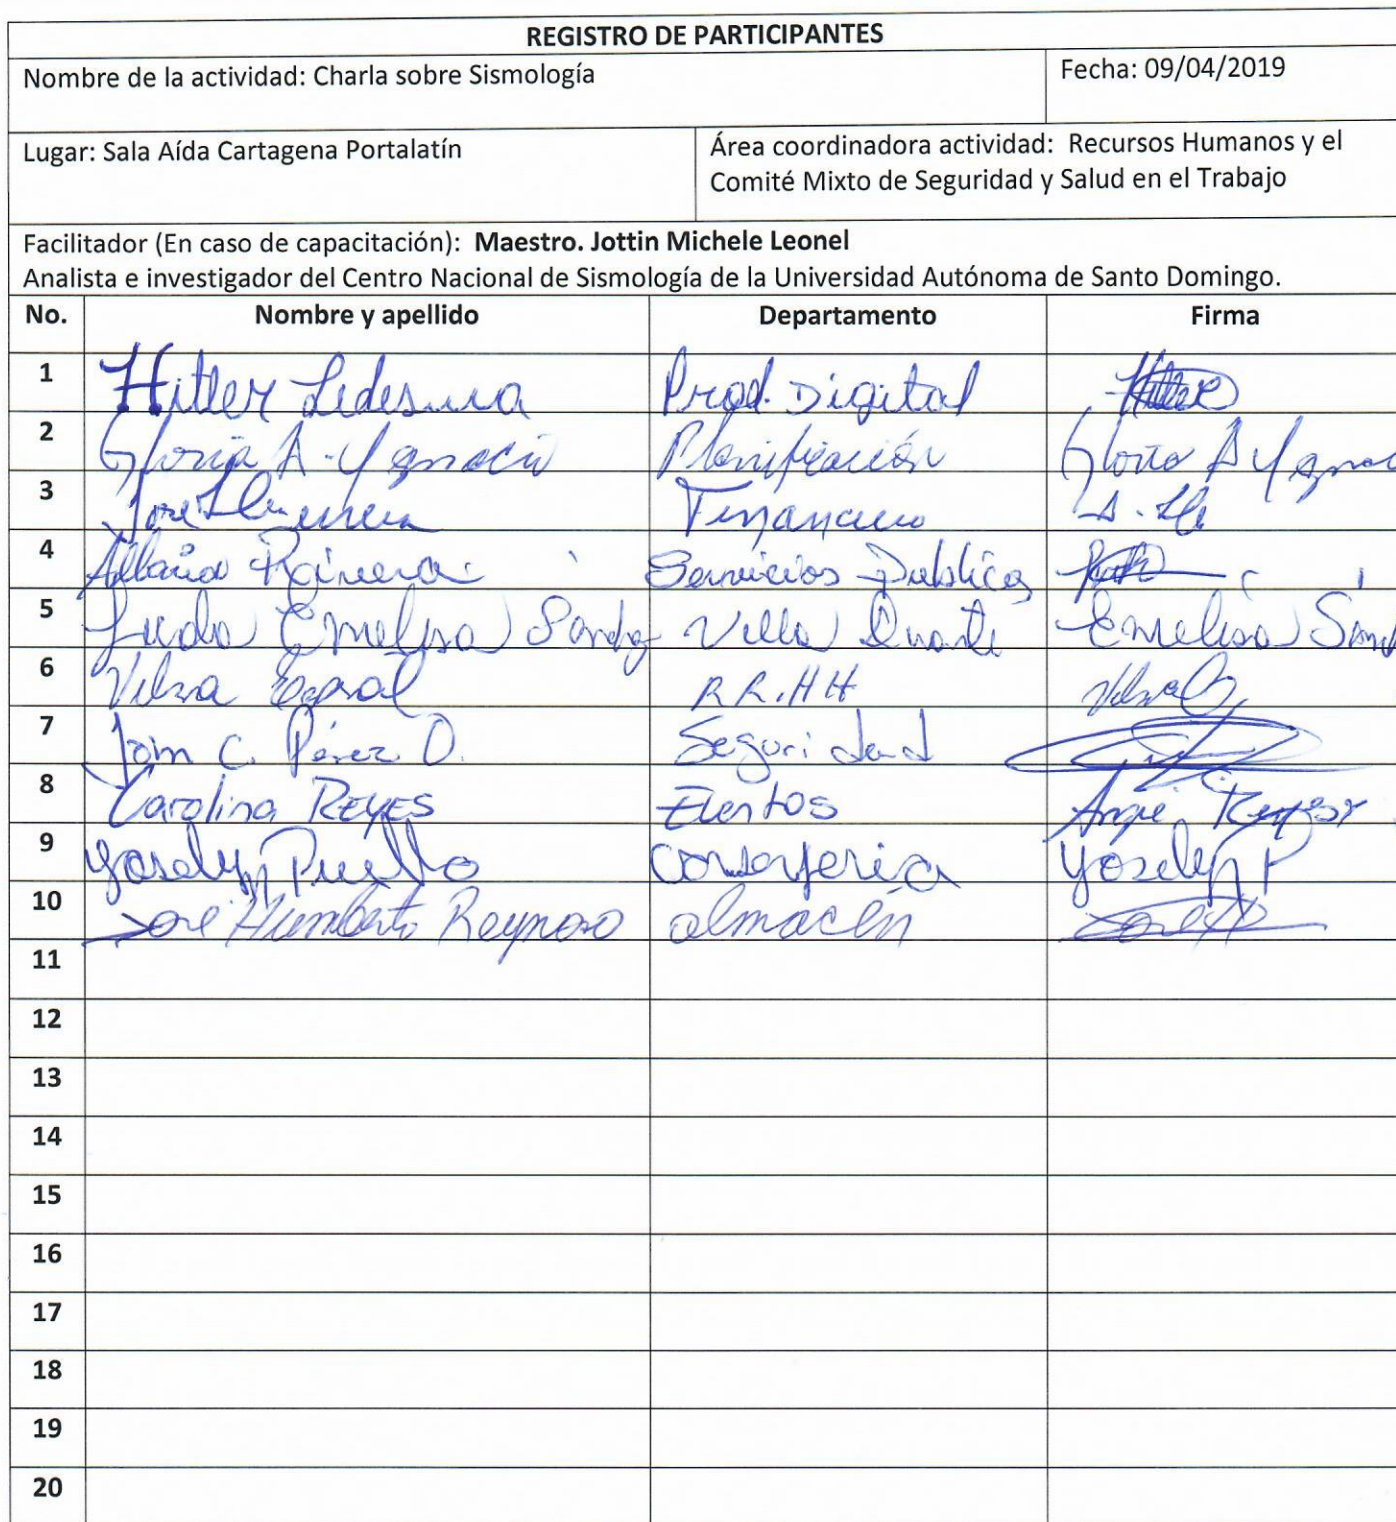 REGISTRO DE PARTICIPANTES
Nombre de la actividad: Charla sobre Sismología Fecha: 09/04/2019
Lugar: Sala Aída Cartagena Portalatín Área coordinadora actividad: Recursos Humanos y el
Comité Mixto de Seguridad y Salud en el Trabajo
Facilitador (En caso de capacitación): Maestro. Jottin Michele Leonel
Analista e investigador del Centro Nacional de Sismología de la Universidad Autónoma de Santo Domingo.
No. Nombre y apellido Departamento Firma
1 Hitler Ledesma Prod. Digital
2 Gloria A. Ygnacio Planificación Gloria A Ygnac
3 José Financiero
4 Rivera Servicios Publicos
5 Emelisa Villa Duarte Emelisa
6 RR.HH
7 C. Pérez O. Seguridad
8 Carolina REYES
9 Yoselyn Puello Conserjeria Yoselyn P
10 José Humberto Reynoso almacén
11
12
13
14
15
16
17
18
19
20